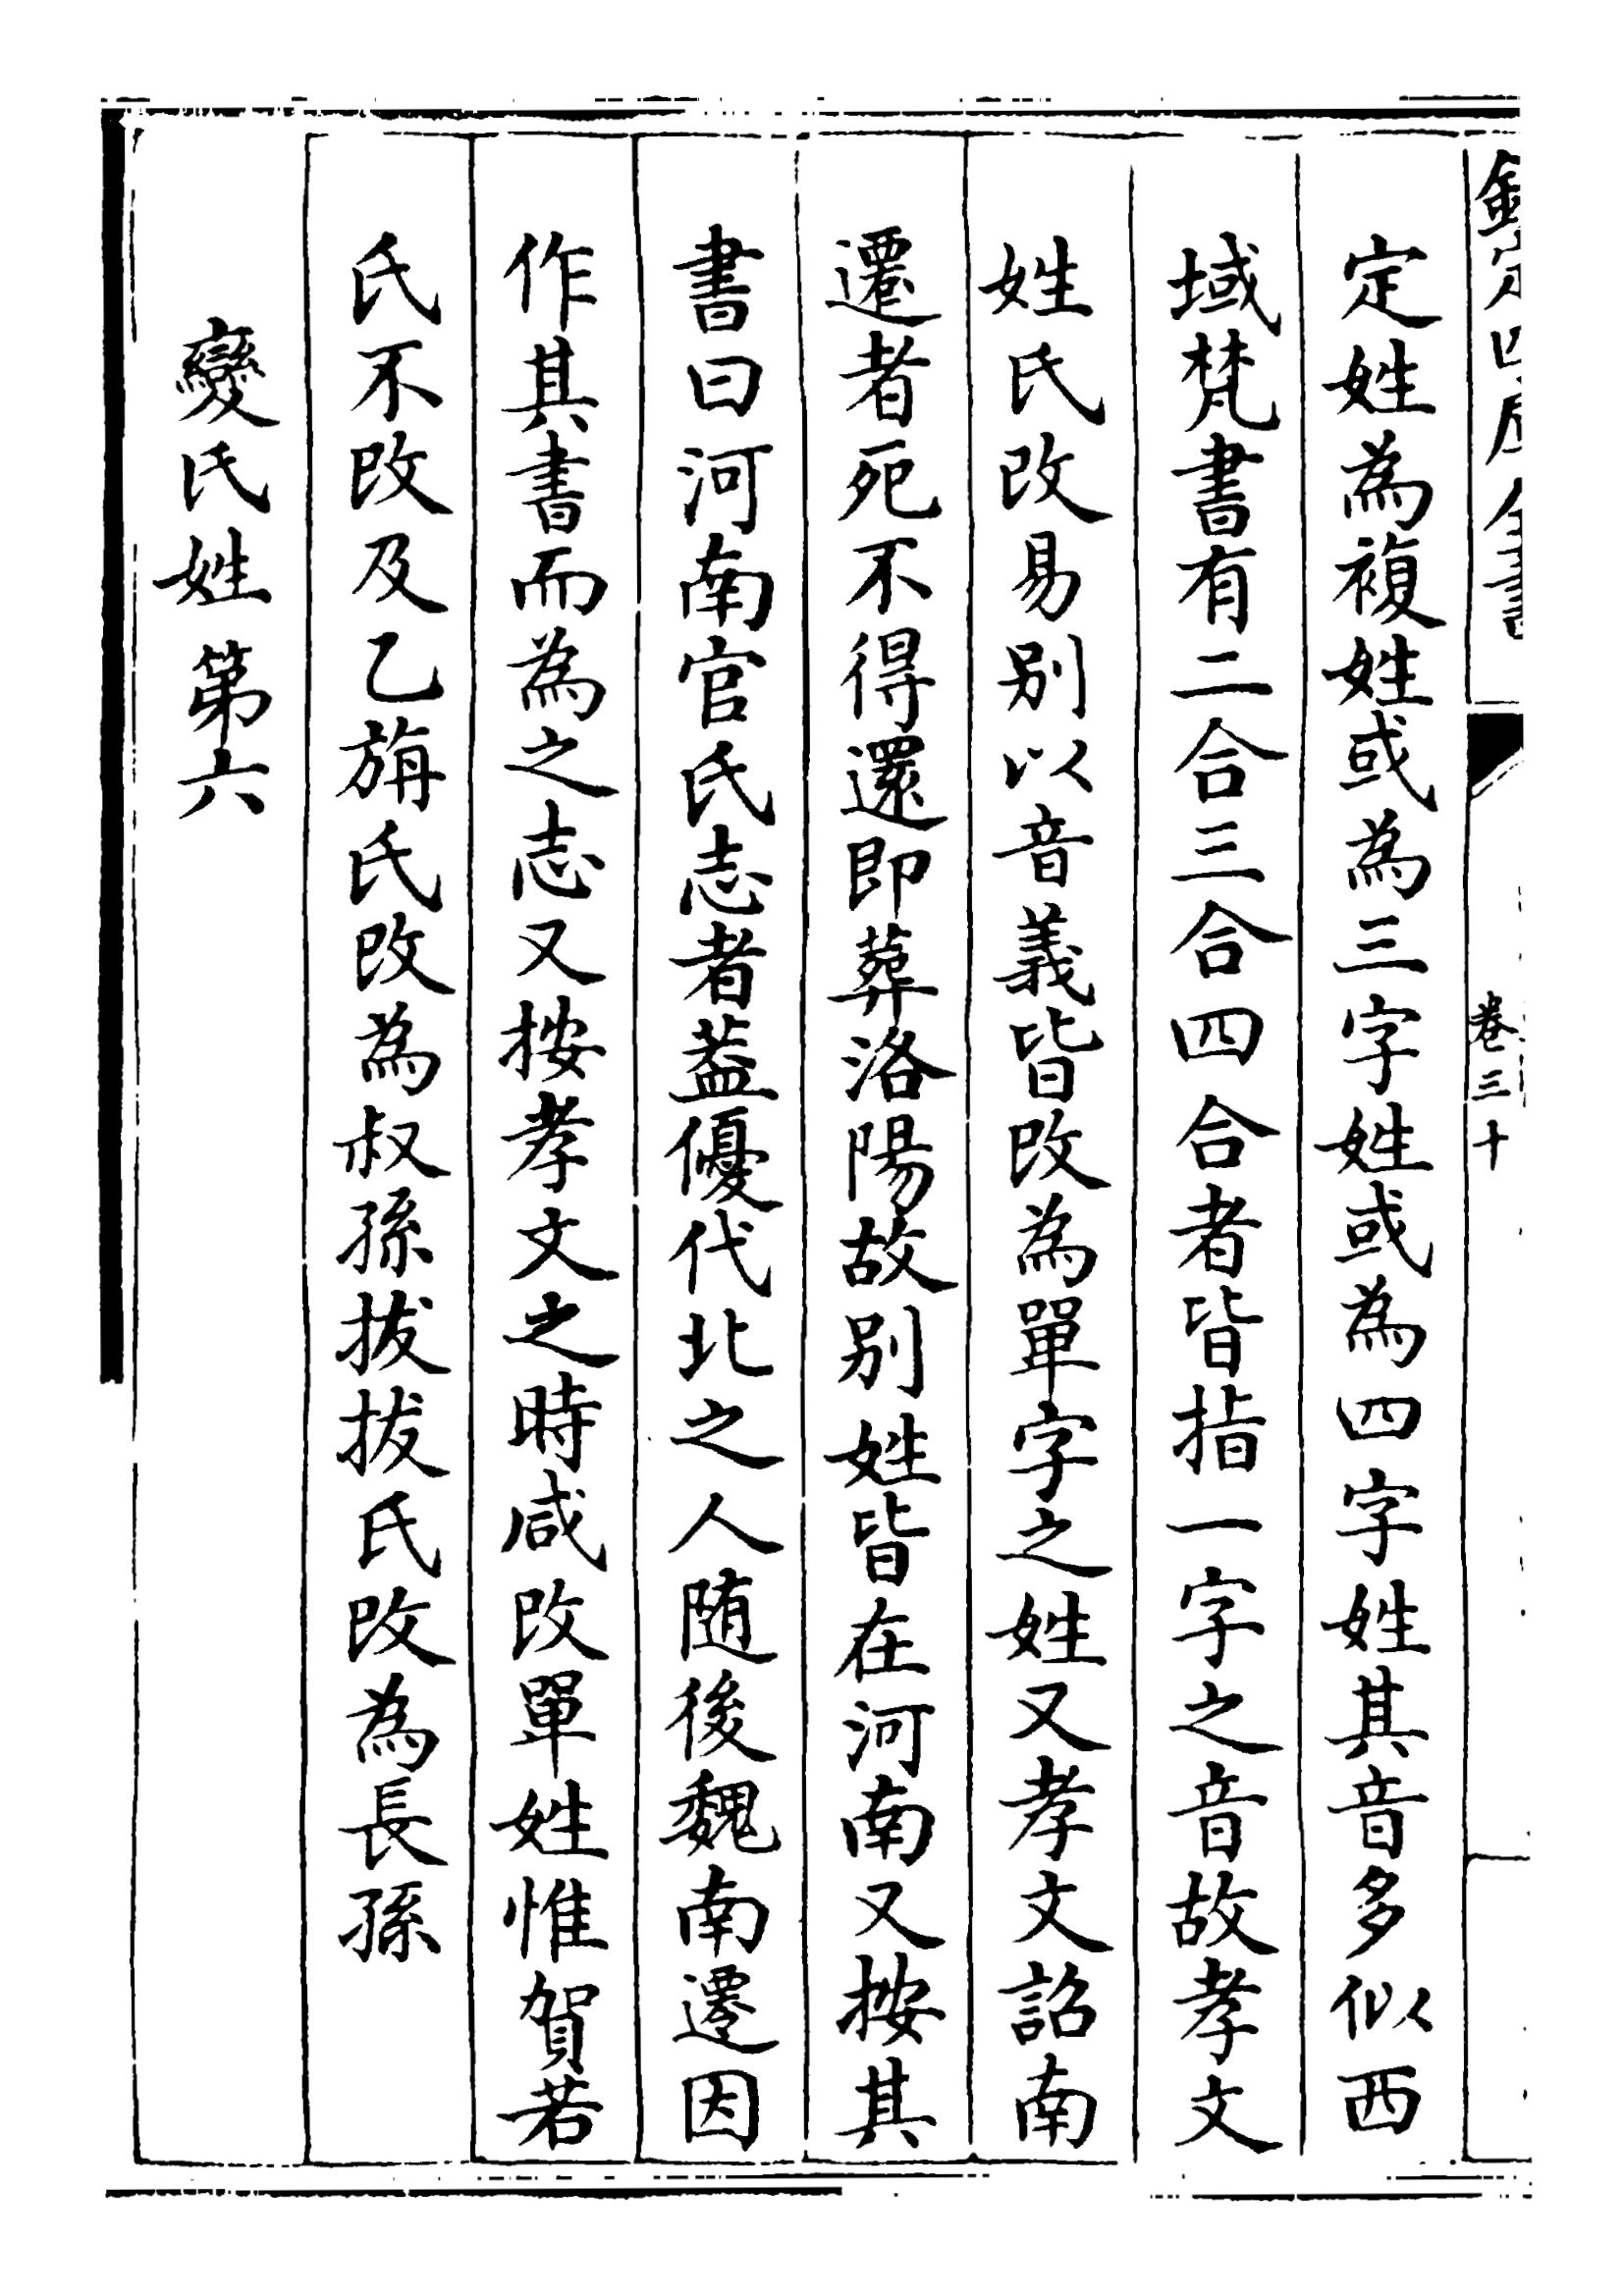 欽定四庫全書
卷三十
定姓為複姓或為三字姓或為四字姓其音多似西
域梵書有二合三合四合者皆指一字之音故孝文
姓氏改易别以音義皆改為單字之姓又孝文詔南
遷者死不得還即葬洛陽故别姓皆在河南又按其
書曰河南官氏志者葢優代北之人随後魏南遷因
作其書而為之志又按孝文之時咸改單姓惟賀若
氏不改及乙旃氏改為叔孫拔拔氏改為長孫
變氏姓第六